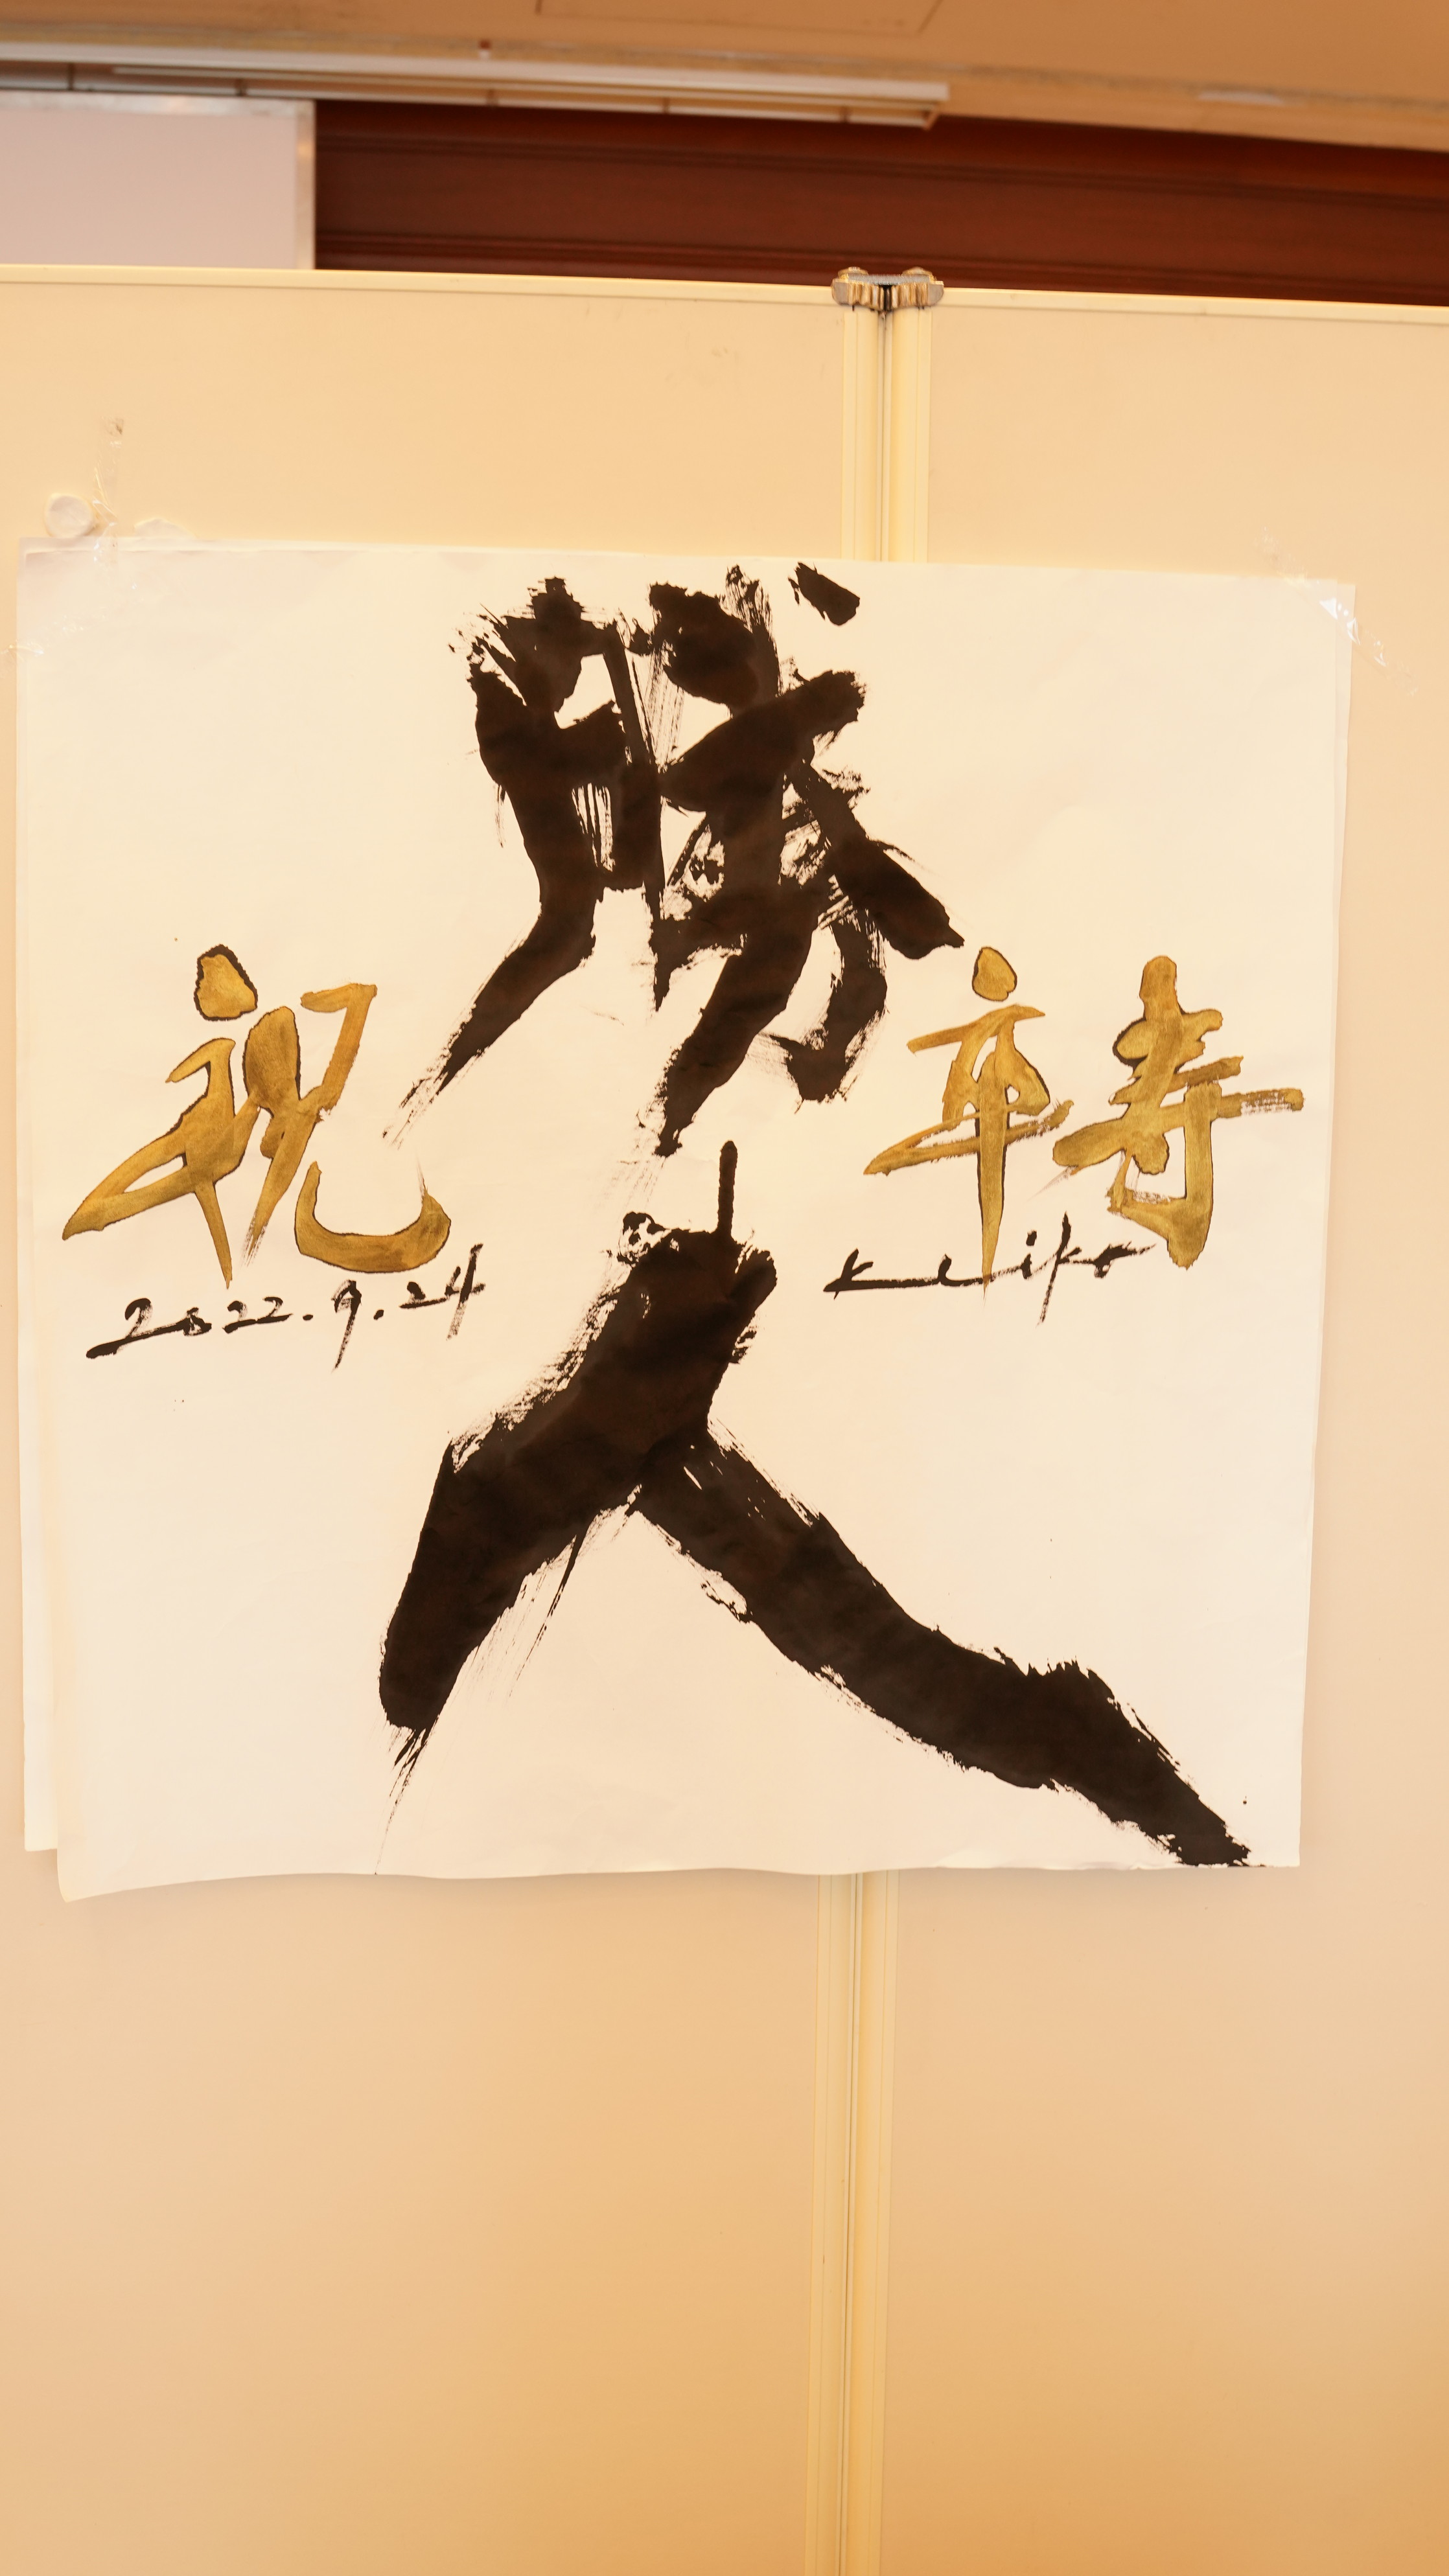 勝人
祝 卒寿
2022.9.24 Keiko